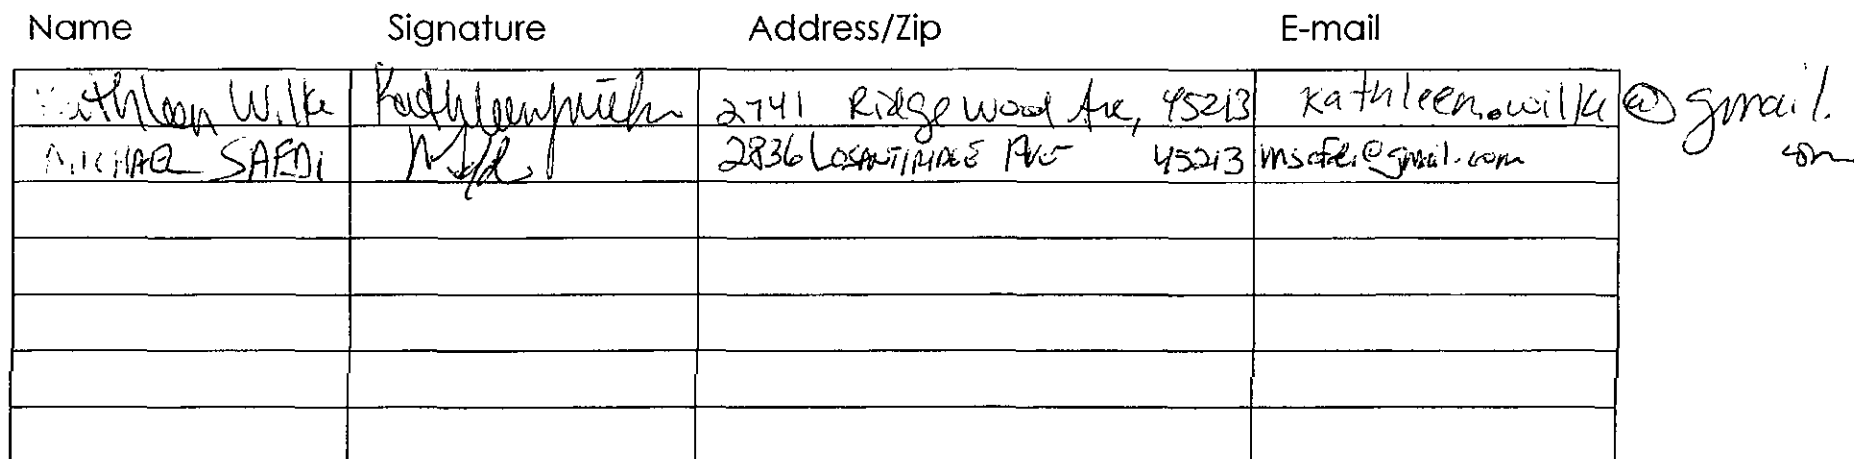 Name Signature Address/Zip E-mail
Kathleen Wilke 2741 Ridgewood Ave, 45213 kathleen.wilke@gmail.com
MICHAEL SAFDI 2836 LOSANTIRIDGE AVE 45213 msafdi@gmail.com